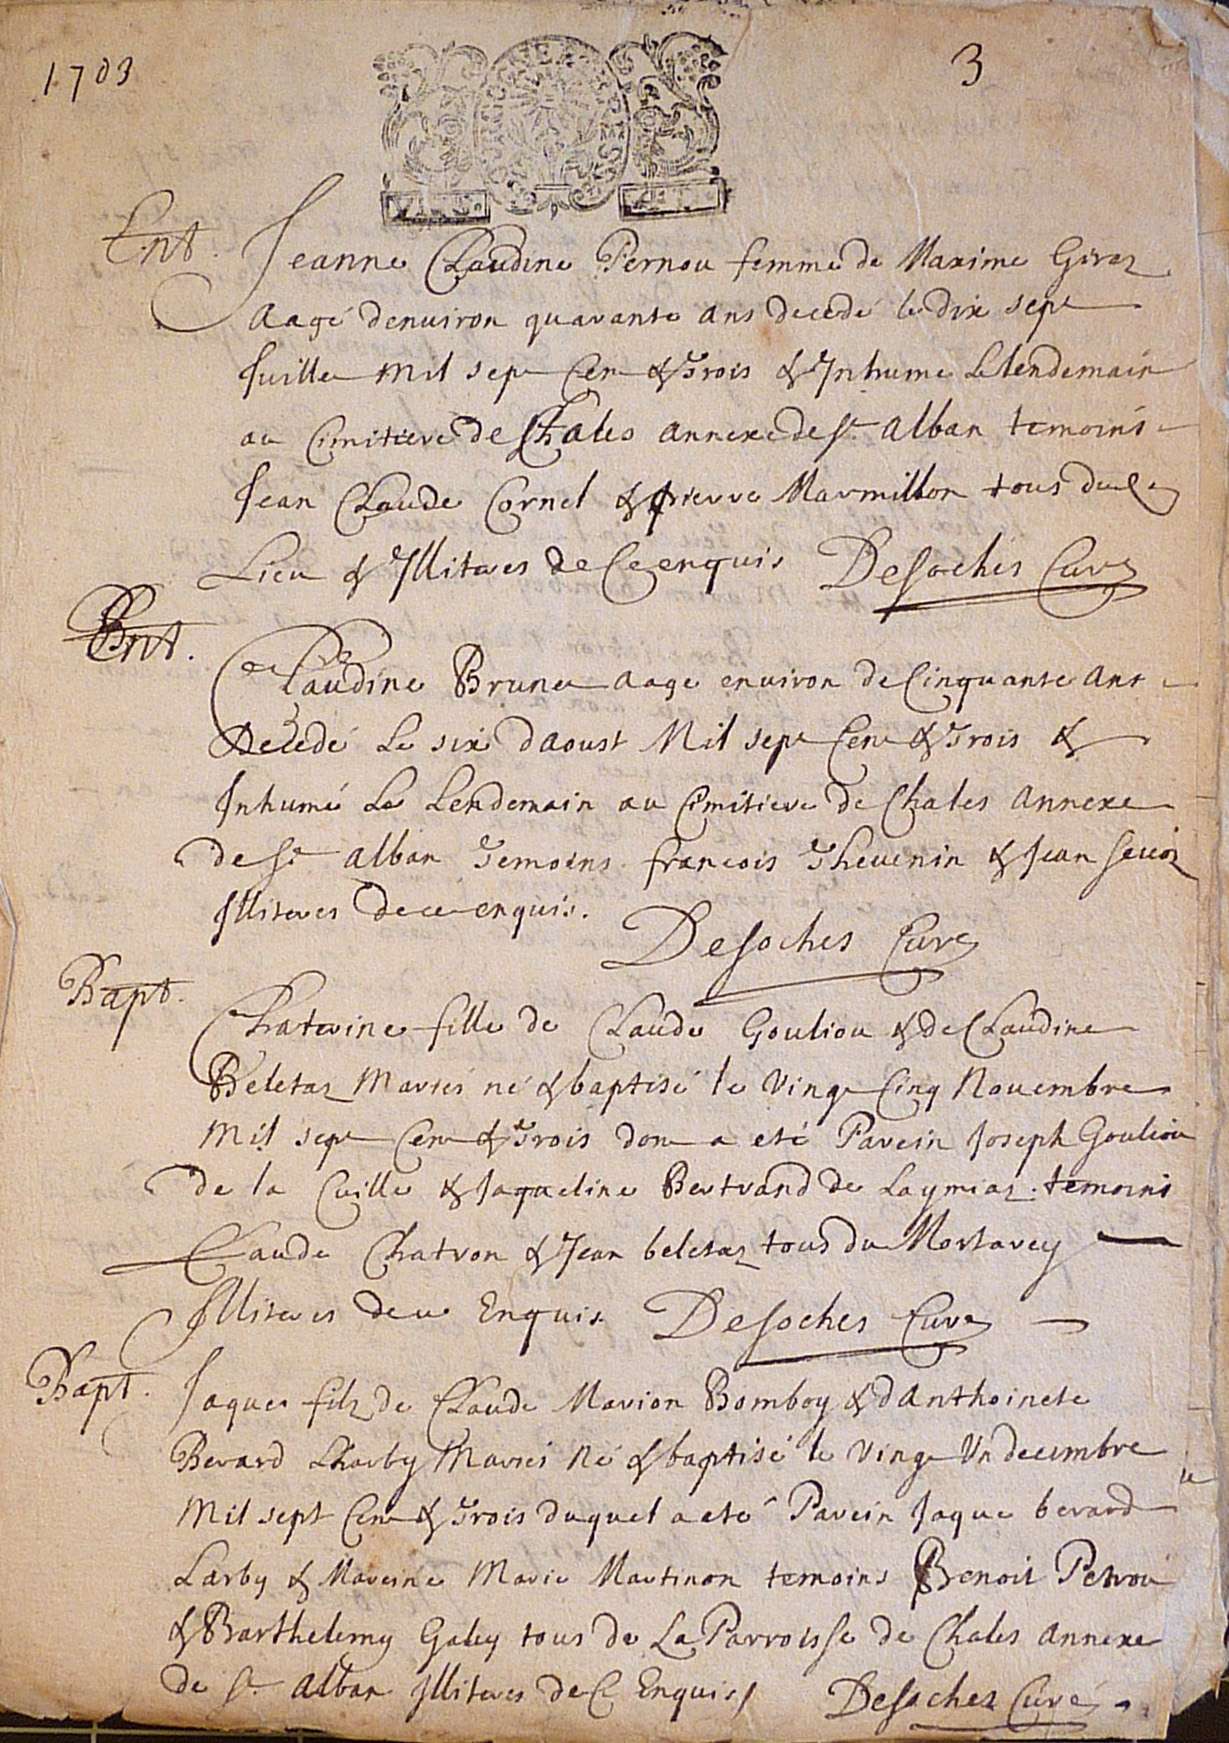 1703
3
Ent. Jeanne Claudine Pernou femme de Maxime Giroz
aagé denuiron quarante ans decedé le dix sept
Juillet mil sept Cent & Trois & Inhumé Le lendemain
au Cimitiere de Chales annexe de St alban temoins
Jean Claude Cornet & pierre Marmillon tous dud
Lieu & Illiteres de Ce enquis Desoches Curé
Ent.
Claudine Brunet aagé enuiron de Cinquante ans
Decedé Le six daoust Mil sept Cent & Trois &
Inhumé Le Lendemain au Cimitiere de Chales annexe
de St alban Temoins francois Theuenin & Jean
Illiteres de ce enquis.
Desoches Curé
Bapt.
Chaterine fille de Claude Gouliou & de Claudine
Beletaz Mariés né & baptisé le vingt Cinq Nouembre
Mil sept Cent & Trois dont a eté Parein Joseph Gouliou
de la Cuille & Jaqueline Bertrand de Laymiaz. temoins
Claude Chatron & Jean beletaz tous du Mortarey
Illiteres de ce Enquis. Desoches Curé
Bapt. Jaques filz de Claude Marion Bomboy & d Anthoinete
Berard Charby Mariés Né & baptisé le vingt Un decembre
Mil sept Cent & Trois duquel a eté Parein Jaque berard
Larby & Mareine Marie Martinon temoins Benoit Petrou
& Barthelemy Galey tous de La Parroisse de Chales annexe
de St alban Illiteres de Ce Enquis Desoches Curé